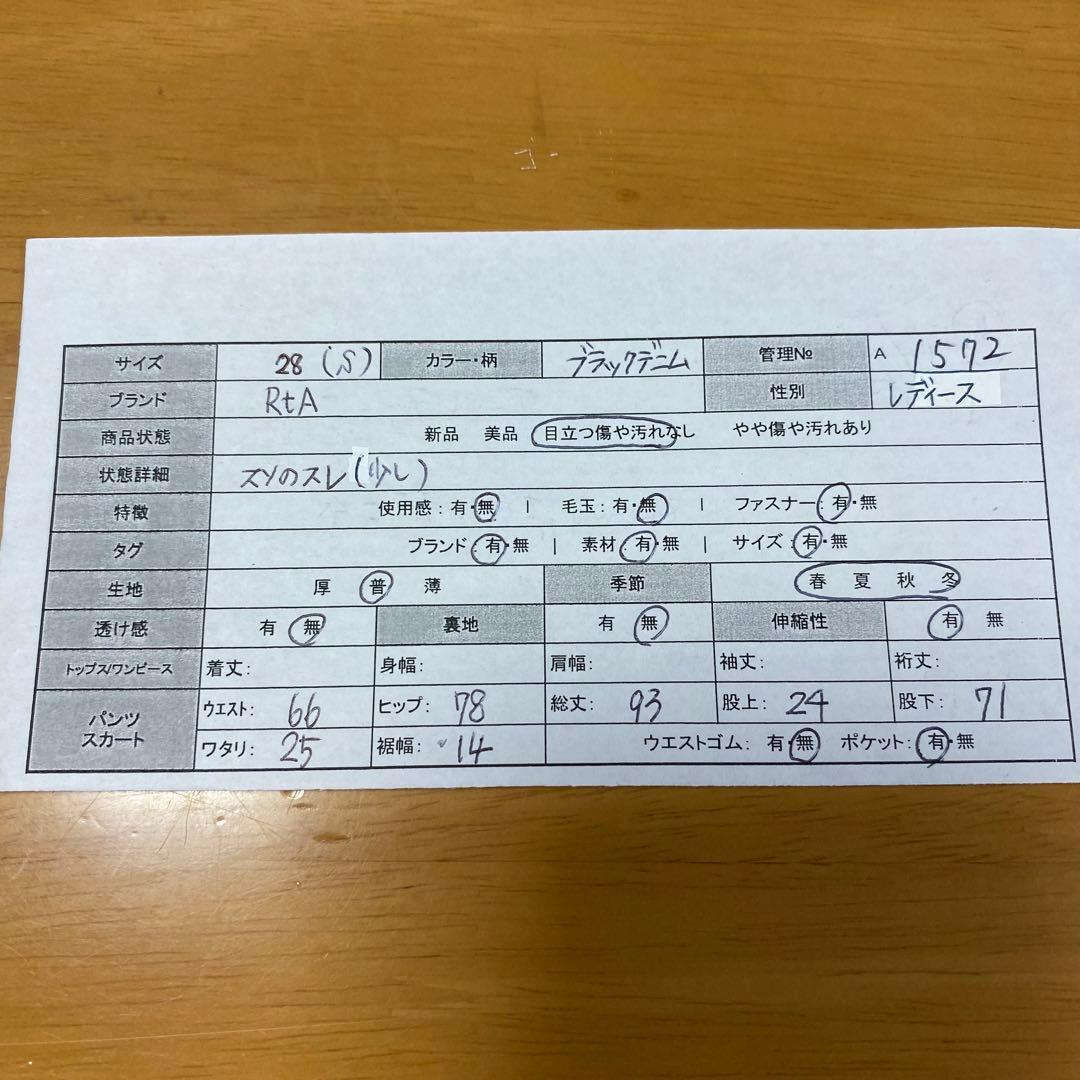 サイズ 28 (S) カラー・柄 ブラックデニム 管理№ A 1572
ブランド RtA 性別 レディース
商品状態 新品 美品 目立つ傷や汚れなし やや傷や汚れあり
状態詳細 スソのスレ(少し)
特徴 使用感:有・無 | 毛玉:有・無 | ファスナー:有・無
タグ ブランド:有・無 | 素材:有・無 | サイズ:有・無
生地 厚 普 薄 季節 春 夏 秋 冬
透け感 有 無 裏地 有 無 伸縮性 有 無
トップス/ワンピース 着丈: 身幅: 肩幅: 袖丈: 裄丈:
パンツ スカート ウエスト: 66 ヒップ: 78 総丈: 93 股上: 24 股下: 71
ワタリ: 25 裾幅: 14 ウエストゴム:有・無 ポケット:有・無